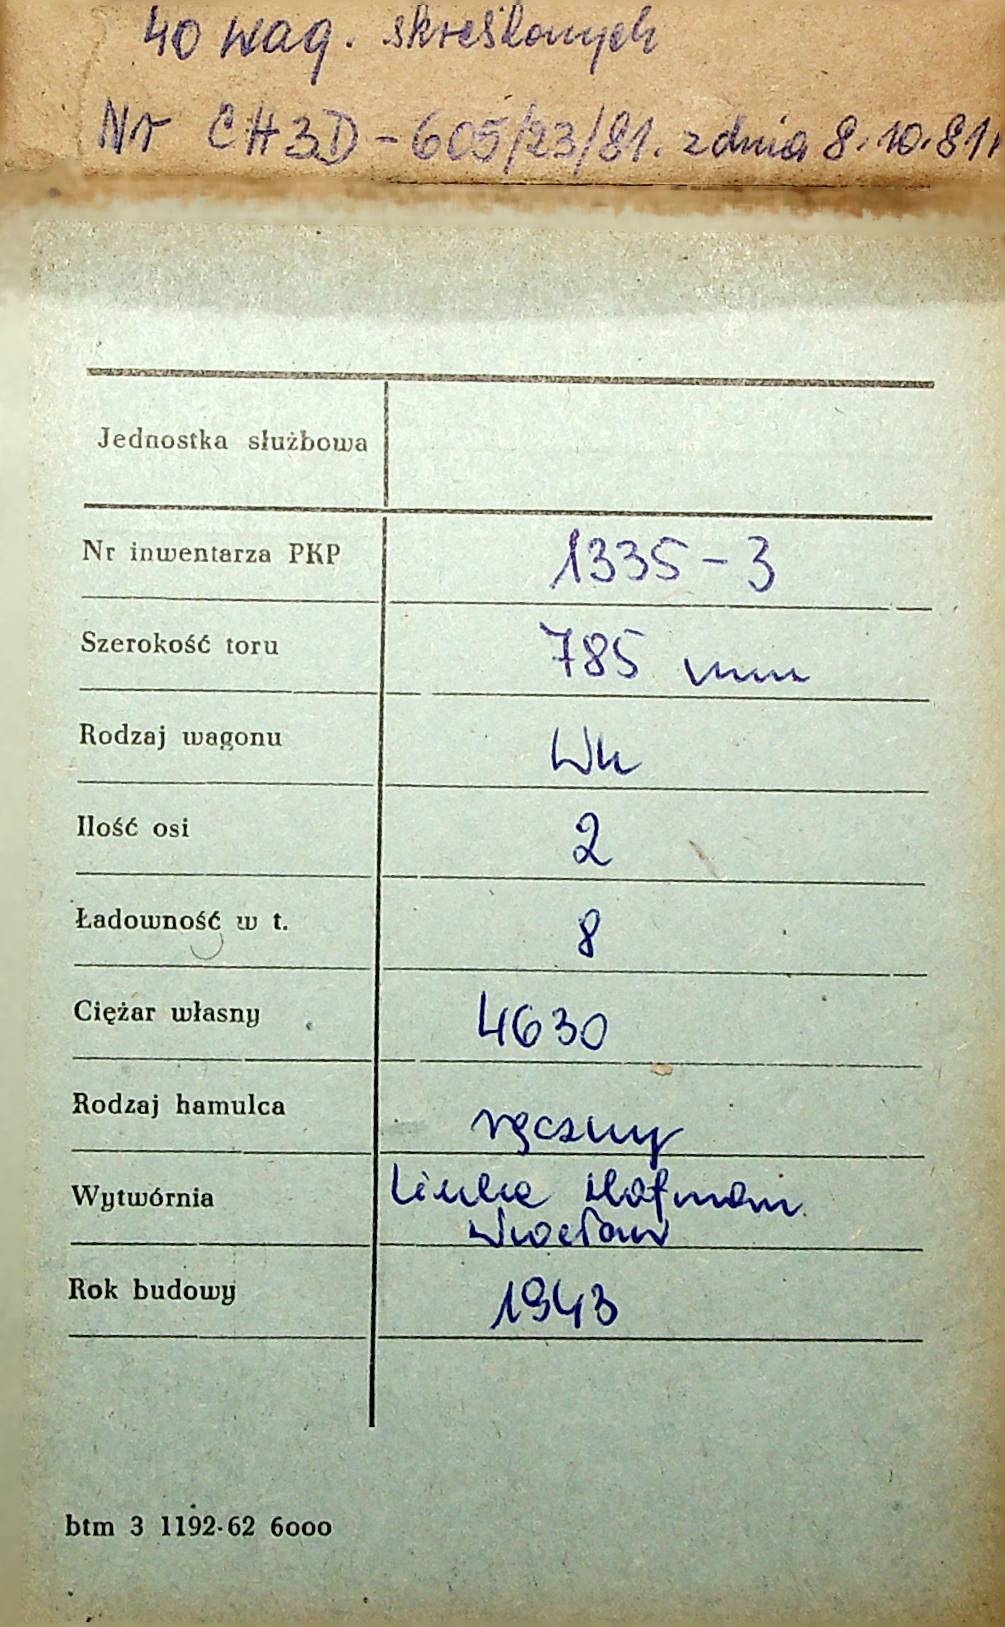 40 wag. skreślonych
Nr CH3D-605/23/81. z dnia 8.10.81r
Jednostka służbowa
Nr inwentarza PKP 1335-3
Szerokość toru 785 mm
Rodzaj wagonu Wk
Ilość osi 2
Ładowność w t. 8
Ciężar własny 4630
Rodzaj hamulca ręczny
Wytwórnia Linke Hofman
Wrocław
Rok budowy 1943
btm 3 1192-62 6000